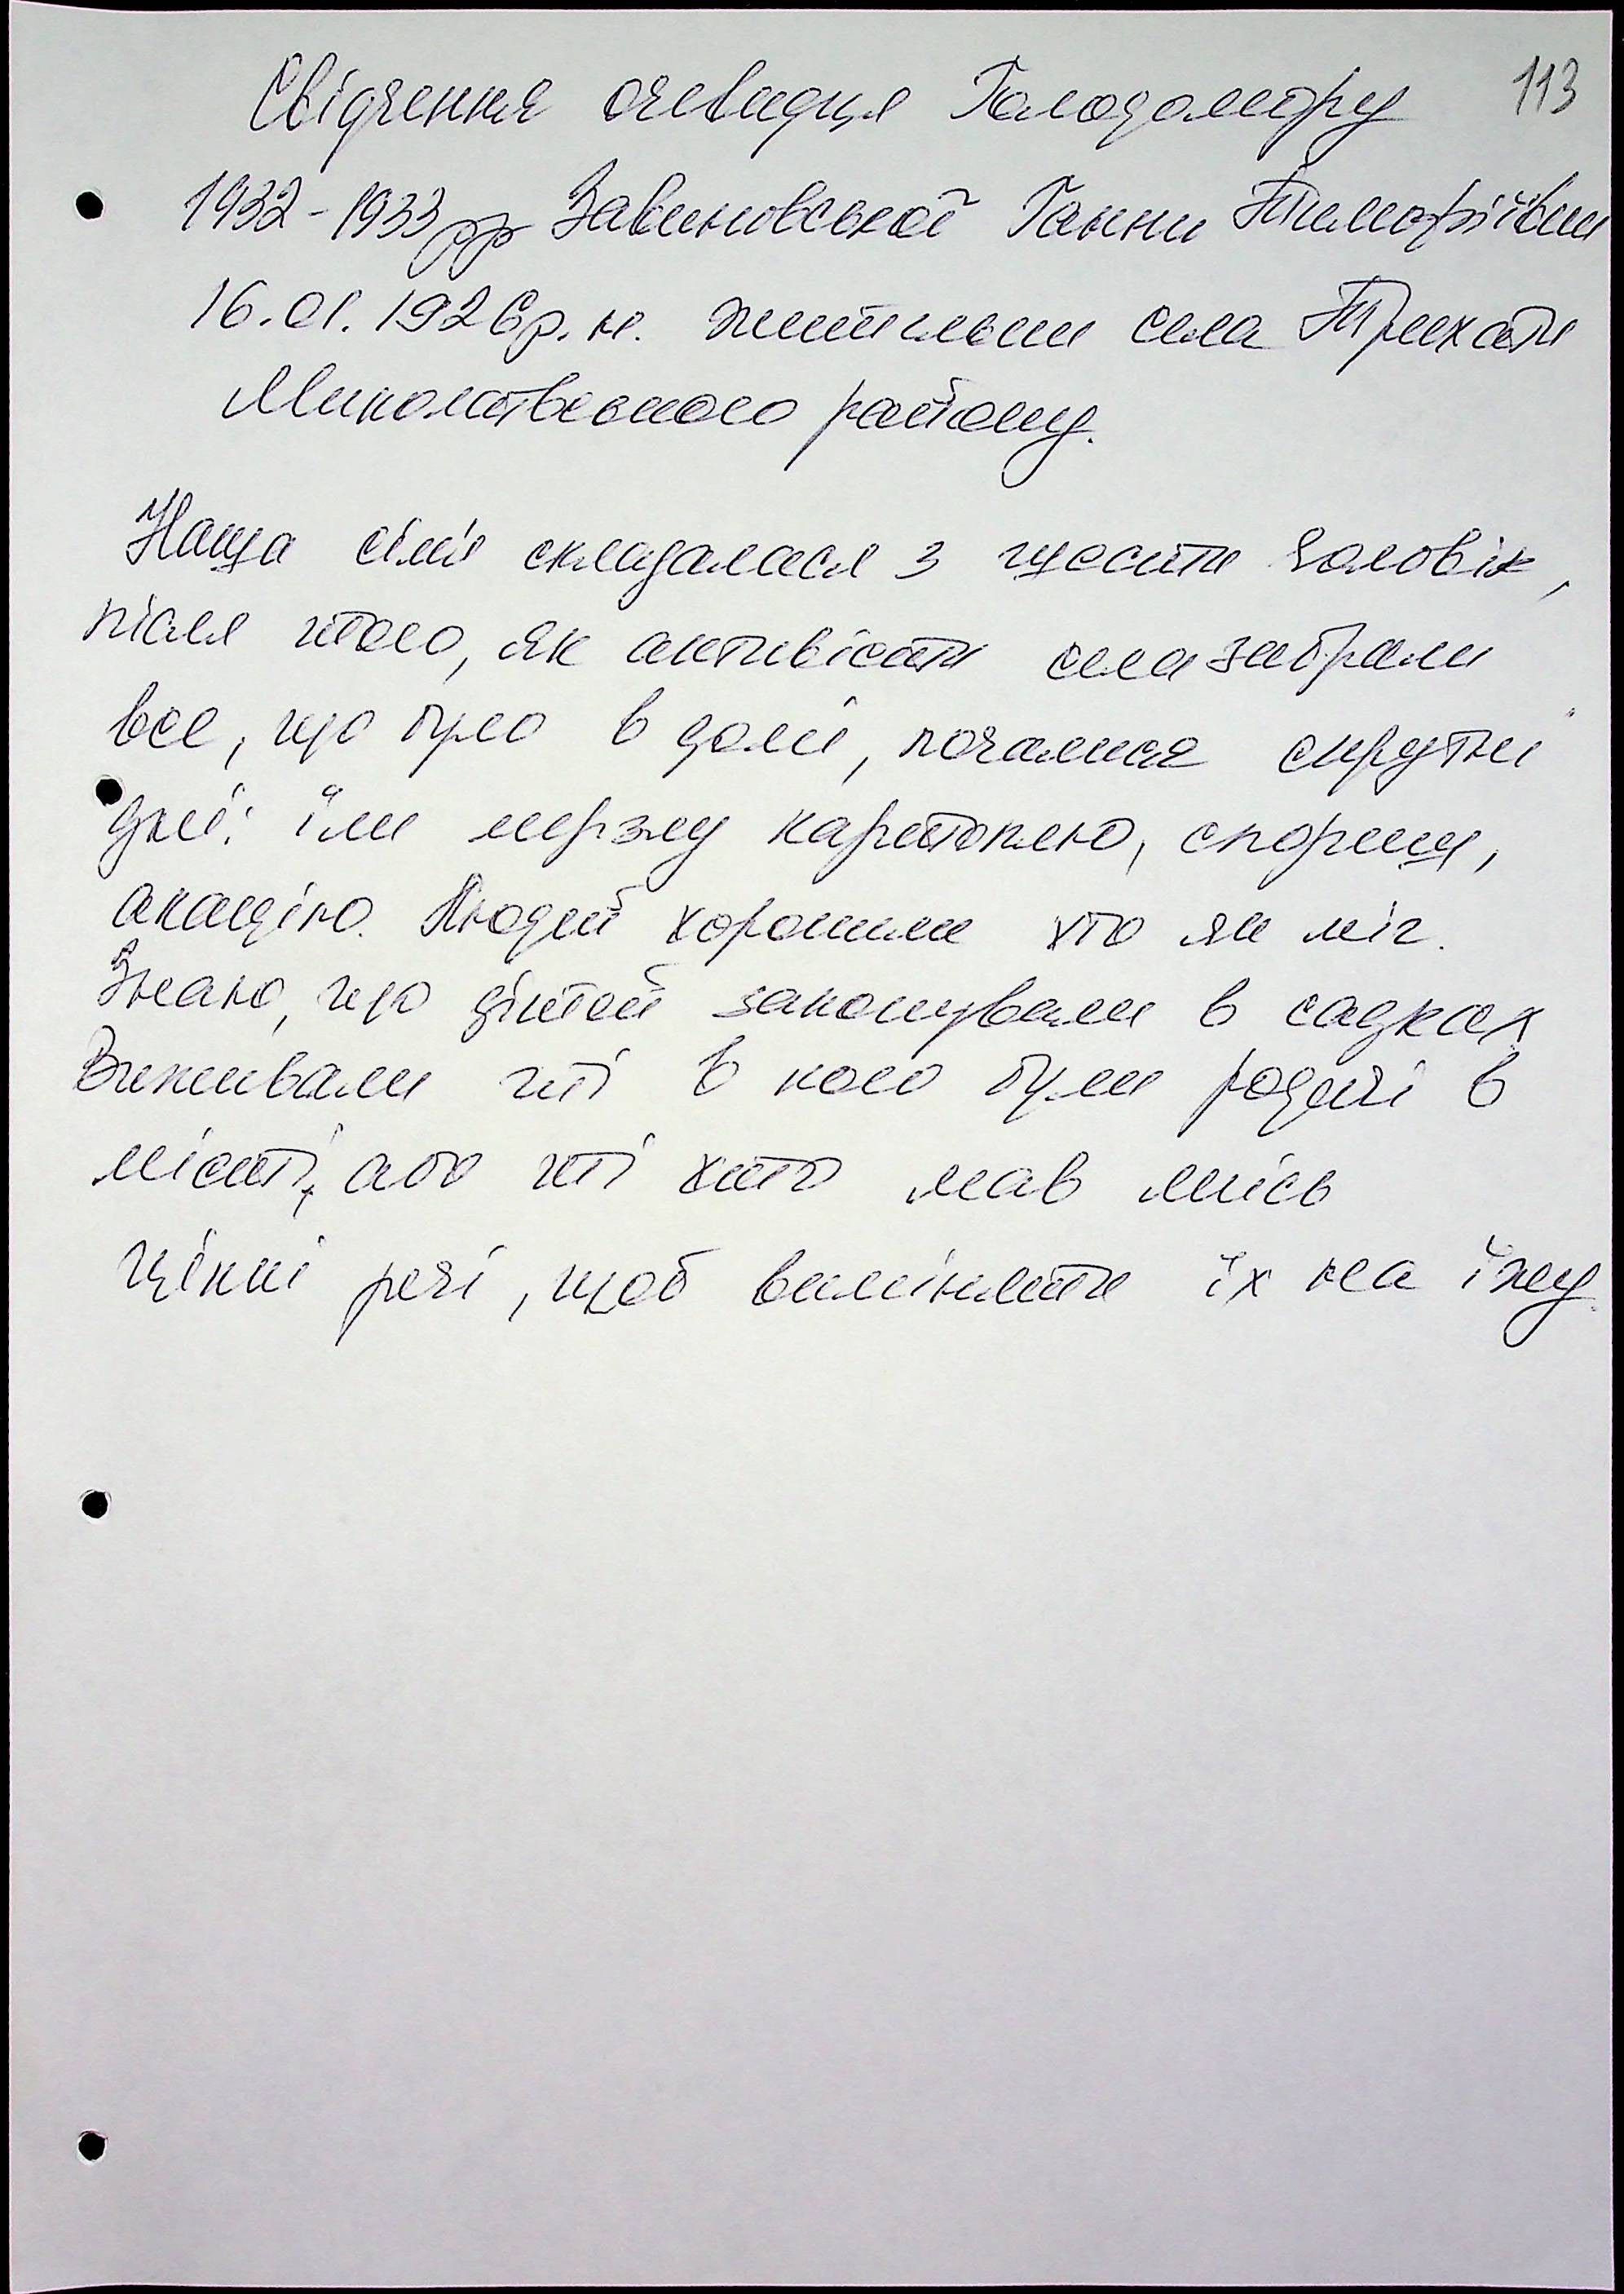 Свідчення очевидця Голодомору 113
1932-1933рр Завиновської Ганни Тимофіївни
16.01.1926р.н. жительки села Трихати
Миколаївського району.
Наша сім'я складалася з шести чоловік,
після того, як активісти села забрали
все, що було в домі, почалися скрутні
дні: їли мерзлу картоплю, спориш,
акацію. Людей хоронили хто як міг.
Знаю, що дітей закопували в садках
Виживали ті в кого були родичі в
місті, або ті хто мав якісь
цінні речі, щоб виміняти їх на їжу.